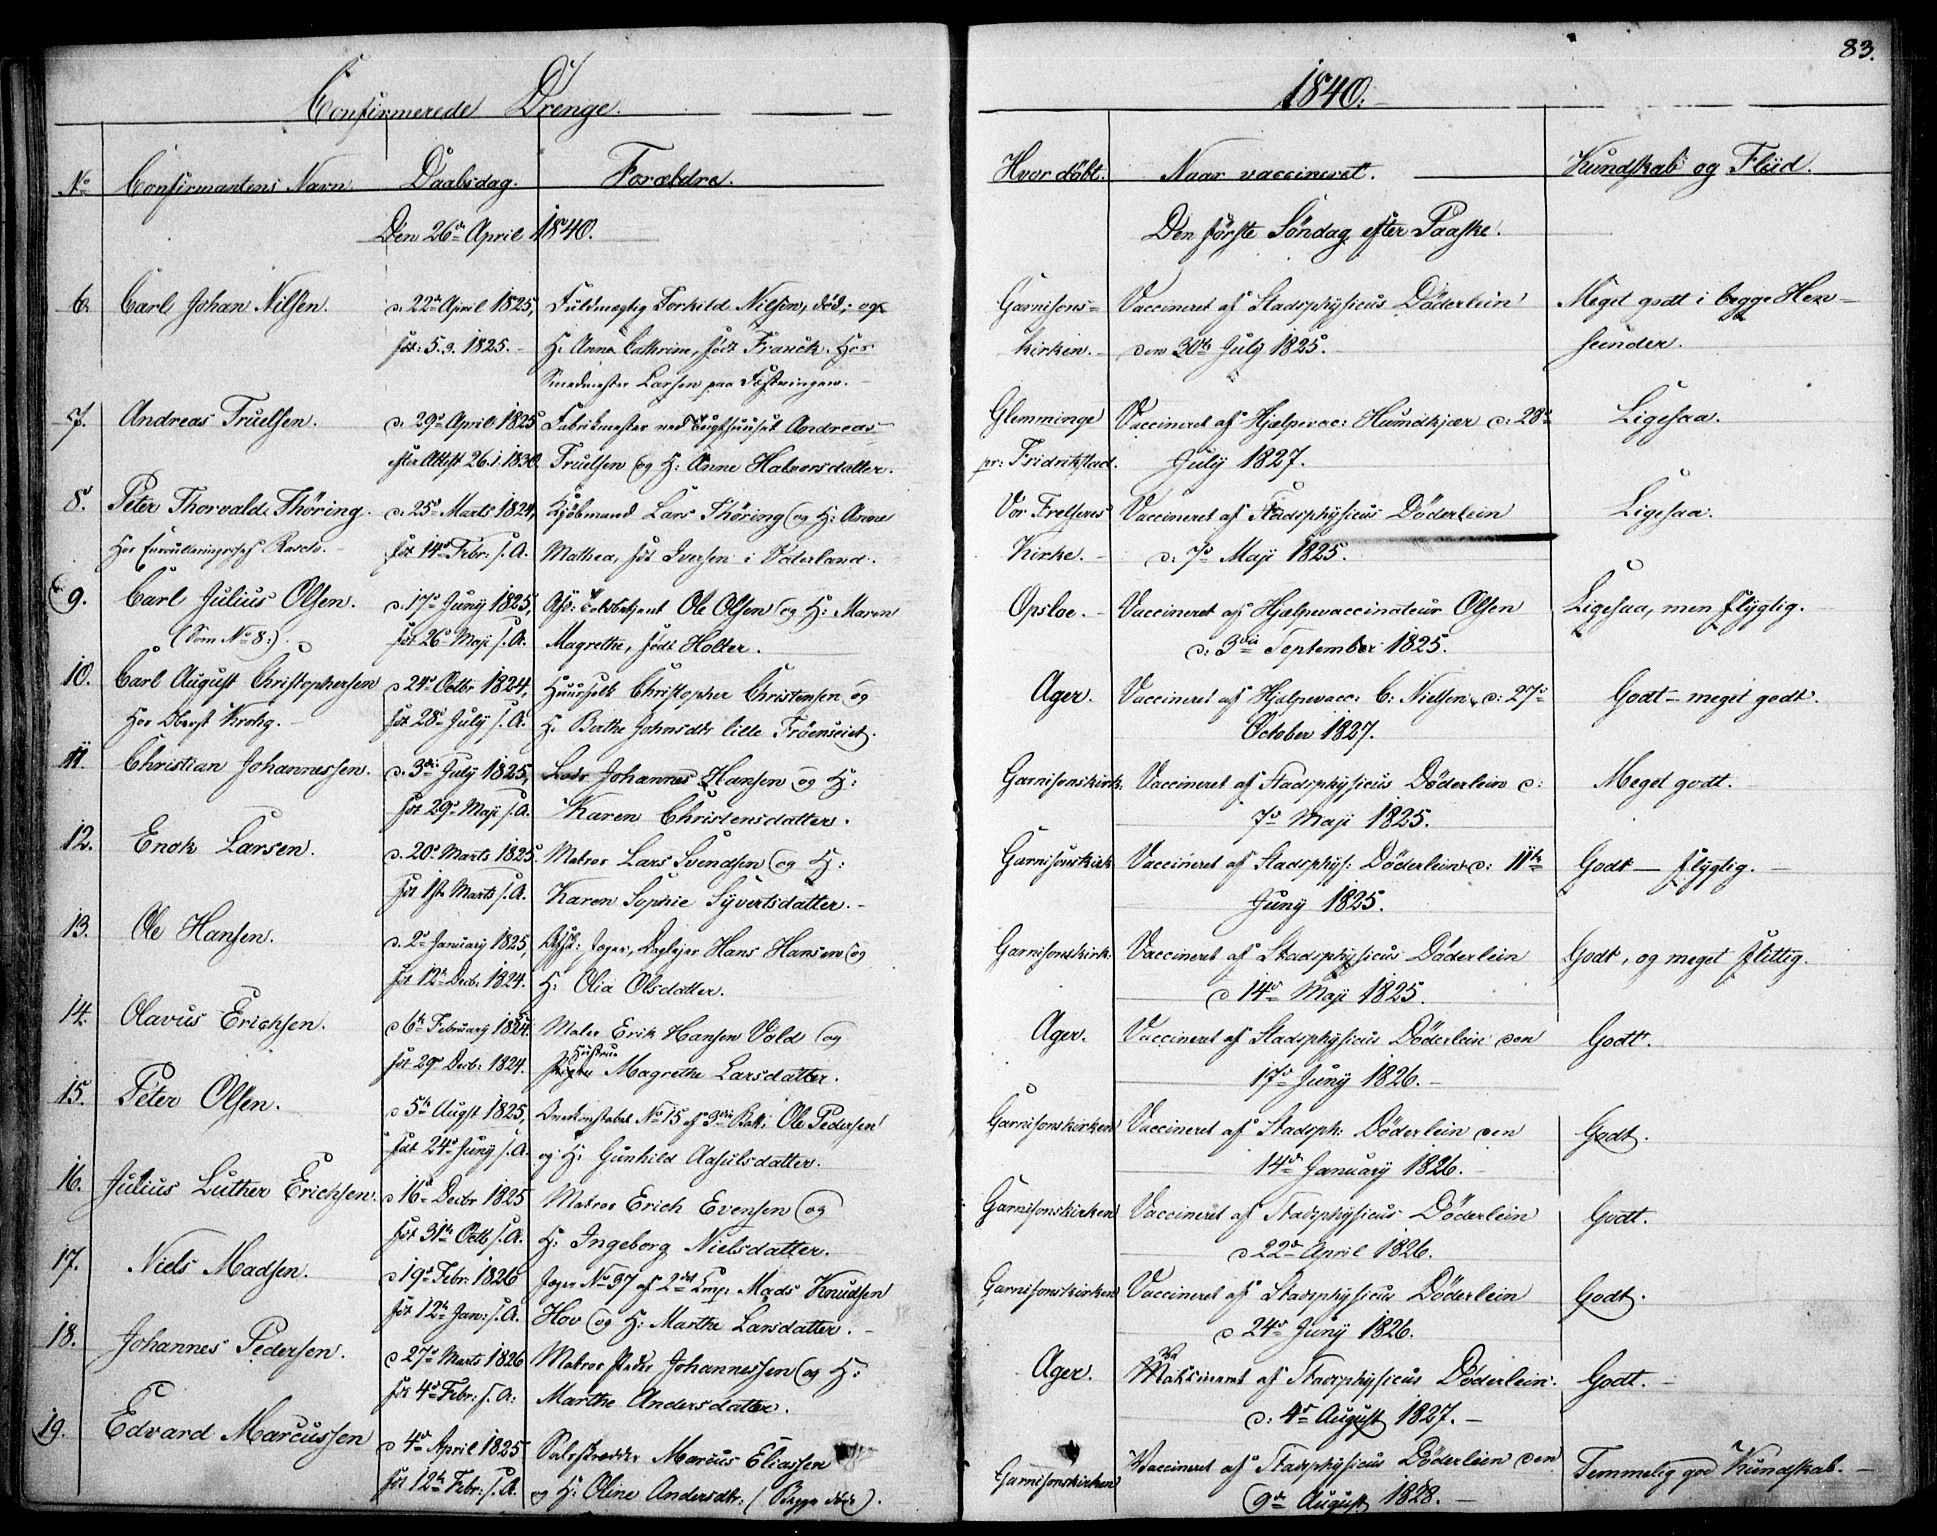 Confirmerede Drenge.
No Confirmantens Navn Daabsdag. Forældre.
Den 26de April 1840.
6. Carl Johan Nilsen. d. 22de April 1825, Fuldmægtig Torkild Nilsen, død, og
fød: 5.3.1825. H: Anne Cathrine, født Franck. Hos
Smedmester Larsen paa Fæstningen.
7. Andreas Truelsen. d. 29de April 1825 Fabrikmester ved Tugthuuset Andreas
efter Attest 26.1.1830. Truelsen og H: Anne Halvorsdatter.
8. Peter Thorvald Thöring. d. 25de Marts 1824, Kjöbmand Lars Thöring og H: Anne
Hos Rasch. fød 14de Febr: s. A. Mathea, fød Iversen i Vaterland.
9. Carl Julius Olsen. d. 17de Juny 1825, Afsk: Toldbetjent Ole Olsen og H: Maren
(Som No 8:). fød 26de Maji s. A. Magrethe, født Holter.
10. Carl August Christophersen d. 24de Octbr 1824, Christopher Christensen og
Hos Oberst Krohg. fød 28de July s. A. H. Berthe Johnsdtr lille Fröenseiet.
11 Christian Johannessen. d. 3die July 1825, Johannes Hansen og H:
fød 29de Maji s. A. Karen Christensdatter.
12. Enok Larsen. d. 20de Marts 1825. Matros Lars Svendsen og H:
fød 1ste Marts s. A. Karen Sophie Syvertsdatter.
13. Ole Hansen. d. 2de January 1825, Afsk: Jæger, Daglejer Hans Hansen og
fød 12te Decbr 1824. H: Olia Olsdatter.
14. Olavus Erichsen. d 6te February 1825. Maler Erik Hansen Vold og
fød 29de Decbr: 1824. Hustrue Magrethe Larsdatter.
15. Peter Olsen. d 5te Augst 1825, No 15 af 3die Batt: Ole Pedersen
fød 24de Juny s. A. og H: Gunhild Aasulsdatter.
16. Julius Luther Erichsen. d 16de Decbr 1825 Matros Erich Evensen og
fød 31te Octb s. A. H: Ingeborg Nielsdatter.
17. Niels Madsen. d 19de Febr: 1826 Jæger No 37 af 2det Comp: Mads Knudsen
fød 12te Jan: s. A. Hov og H: Marthe Larsdatter.
18. Johannes Pedersen. d 27de Marts 1826 Matros Peder Johannessen og H:
fød 4de Febr: s. A: Marthe Andersdatter.
19. Edvard Marcussen d 4de April 1825 Marcus Eliassen
fød 12te Febr: s. A. og H: Oline Andersdtr: (Begge døde).
83.
1840.
Hvor döbt. Naar vaccineret. Kundskab og Fliid.
Den förste Söndag efter Paaske.
Garnisons= Vaccineret af Stadsphysicus Döderlein Meget godt i begge Hen-
kirken. den 30te July 1825. seender.
Glemminge Vaccineret af Hjælpevac: Humdkjær d: 28de Ligesaa.
pr: Fridrikstad. July 1827.
Vor Frelseres Vaccineret af Stadsphysicus Döderlein Ligesaa.
Kirke. d: 7de Maji 1825.
Opsloe. Vaccineret af Hjælpevaccinateur Olsen Ligesaa, men flygtig.
d: 3die September 1825.
Ager. Vaccineret af Hjælpevacc: C: Nielsen, d: 27de Godt - meget godt.
October 1827.
Garnisonskirk. Vaccineret af Stadsphysicus Döderlein d: Meget godt.
7de Maji 1825.
Garnisonskirk Vaccineret af Stadsphys: Döderlein d: 11te Godt - flygtig.
Juny 1825.
Garnisonskirk: Vaccineret af Stadsphysicus Döderlein Godt, og meget flittig.
d 14de Maji 1825.
Ager. Vaccineret af Stadsphysicus Döderlein den Godt.
17de Juny 1826.
Garnisonskirken Vaccineret af Stadsph: Döderlein den Godt.
14de January 1826.
Garnisonskirken Vaccineret af Stadsphysicus Döderlein Godt.
d 22de April 1826.
Garnisonskirken Vaccineret af Stadsphysicus Döderlein Godt.
d 24de Juny 1826.
Ager. Vaksineret af Stadsphysicus Döderlein. Godt.
d: 4de August 1827.
Garnisonskirken Vaccineret af Stadsphysicus Döderlein den Temmelig god Kundskab.
9de August 1828.